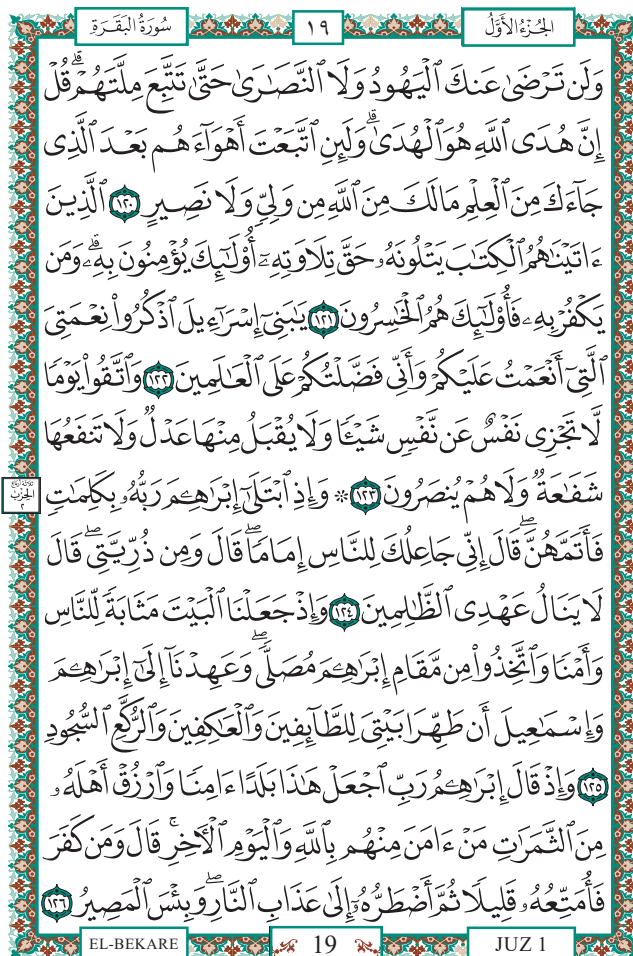 سُورَةُ الْبَقَرَةِ ١٩ الجُزْءُ الأَوَّلُ
وَلَن تَرْضَىٰ عَنكَ ٱلْيَهُودُ وَلَا ٱلنَّصَـٰرَىٰ حَتَّىٰ تَتَّبِعَ مِلَّتَهُمْ ۗ قُلْ
إِنَّ هُدَى ٱللَّهِ هُوَ ٱلْهُدَىٰ ۗ وَلَئِنِ ٱتَّبَعْتَ أَهْوَآءَهُم بَعْدَ ٱلَّذِى
جَآءَكَ مِنَ ٱلْعِلْمِ مَا لَكَ مِنَ ٱللَّهِ مِن وَلِىٍّ وَلَا نَصِيرٍ ١٢٠ ٱلَّذِينَ
ءَاتَيْنَـٰهُمُ ٱلْكِتَـٰبَ يَتْلُونَهُۥ حَقَّ تِلَاوَتِهِۦٓ أُو۟لَـٰٓئِكَ يُؤْمِنُونَ بِهِۦ ۗ وَمَن
يَكْفُرْ بِهِۦ فَأُو۟لَـٰٓئِكَ هُمُ ٱلْخَـٰسِرُونَ ١٢١ يَـٰبَنِىٓ إِسْرَـٰٓءِيلَ ٱذْكُرُوا۟ نِعْمَتِىَ
ٱلَّتِىٓ أَنْعَمْتُ عَلَيْكُمْ وَأَنِّى فَضَّلْتُكُمْ عَلَى ٱلْعَـٰلَمِينَ ١٢٢ وَٱتَّقُوا۟ يَوْمًا
لَّا تَجْزِى نَفْسٌ عَن نَّفْسٍ شَيْـًٔا وَلَا يُقْبَلُ مِنْهَا عَدْلٌ وَلَا تَنفَعُهَا
شَفَـٰعَةٌ وَلَا هُمْ يُنصَرُونَ ١٢٣ ۞ وَإِذِ ٱبْتَلَىٰٓ إِبْرَٰهِـۧمَ رَبُّهُۥ بِكَلِمَـٰتٍ
ثلاثة أرباع الحزب ٢
فَأَتَمَّهُنَّ ۖ قَالَ إِنِّى جَاعِلُكَ لِلنَّاسِ إِمَامًا ۖ قَالَ وَمِن ذُرِّيَّتِى ۖ قَالَ
لَا يَنَالُ عَهْدِى ٱلظَّـٰلِمِينَ ١٢٤ وَإِذْ جَعَلْنَا ٱلْبَيْتَ مَثَابَةً لِّلنَّاسِ
وَأَمْنًا وَٱتَّخِذُوا۟ مِن مَّقَامِ إِبْرَٰهِـۧمَ مُصَلًّى ۖ وَعَهِدْنَآ إِلَىٰٓ إِبْرَٰهِـۧمَ
وَإِسْمَـٰعِيلَ أَن طَهِّرَا بَيْتِىَ لِلطَّآئِفِينَ وَٱلْعَـٰكِفِينَ وَٱلرُّكَّعِ ٱلسُّجُودِ
١٢٥ وَإِذْ قَالَ إِبْرَٰهِـۧمُ رَبِّ ٱجْعَلْ هَـٰذَا بَلَدًا ءَامِنًا وَٱرْزُقْ أَهْلَهُۥ
مِنَ ٱلثَّمَرَٰتِ مَنْ ءَامَنَ مِنْهُم بِٱللَّهِ وَٱلْيَوْمِ ٱلْـَٔاخِرِ ۚ قَالَ وَمَن كَفَرَ
فَأُمَتِّعُهُۥ قَلِيلًا ثُمَّ أَضْطَرُّهُۥٓ إِلَىٰ عَذَابِ ٱلنَّارِ ۖ وَبِئْسَ ٱلْمَصِيرُ ١٢٦
EL-BEKARE 19 JUZ 1